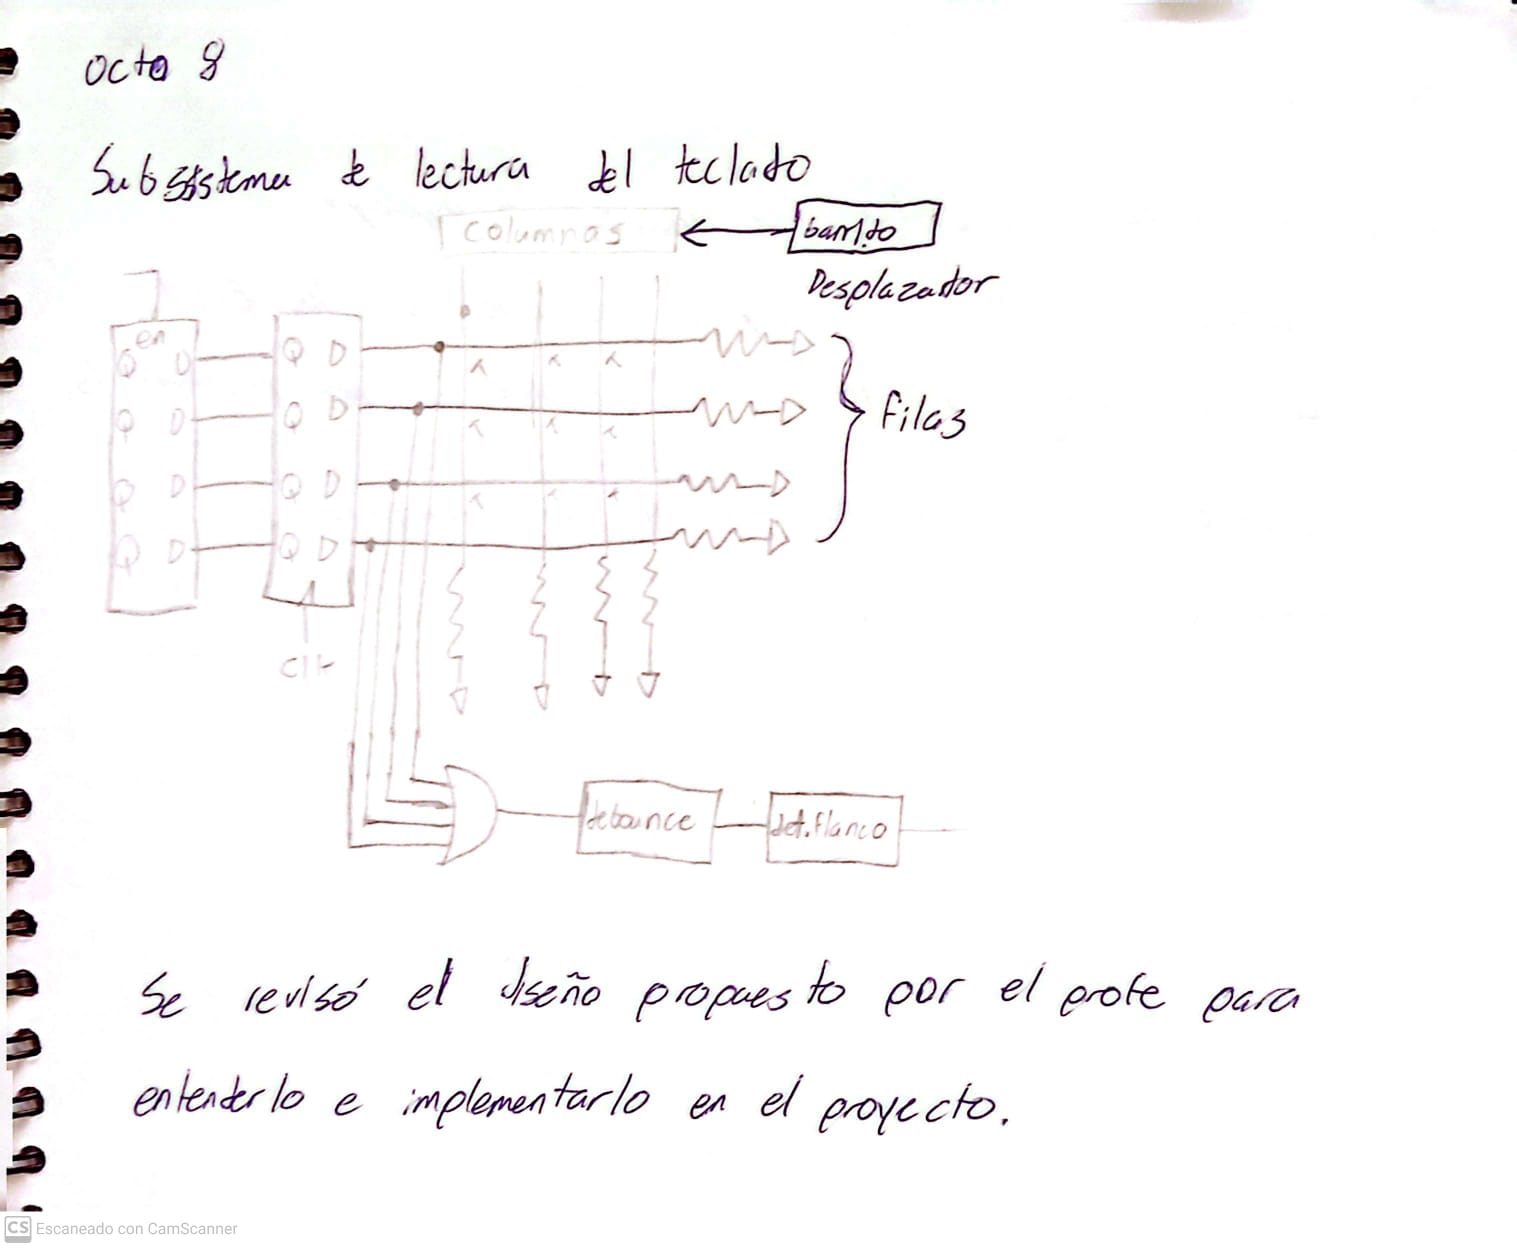 octo 8
Subsistema de lectura del teclado
columnas
barrido
Desplazador
en
Q D Q D
Q D Q D
Q D Q D
Q D Q D
Filas
clk
debounce
det.flanco
Se revisó el diseño propuesto por el profe para
entenderlo e implementarlo en el proyecto.
CS Escaneado con CamScanner